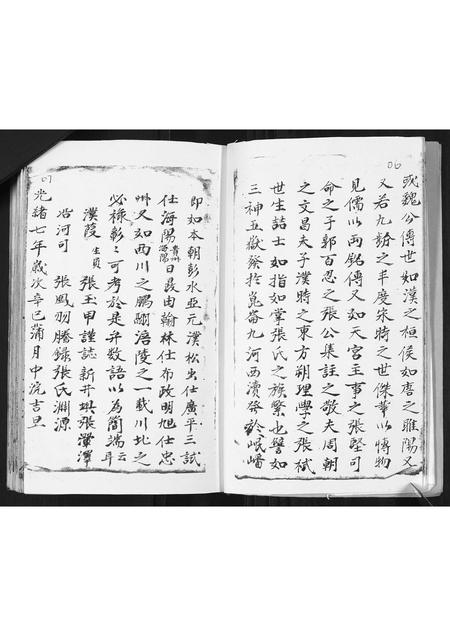 06
或魏分傳世如漢之桓侯如唐之雎陽又
又若九齡之丰度宋時之世傑華以博物
見儒以西銘傳又如天宮主事之張堅可
命之子郭百忍之張公集註之敬夫周朝
之文昌夫子漢時之東方朔理學之張栻
世生詰士如指如掌張氏之族繁也譬如
三神五嶽發於崑崙九河西瀆發於岷嶓
07
即如本朝彭水亞元漢松出仕廣平三試
仕海陽貴州海陽日晸由翰林仕布政明旭仕忠
州又如西川之鵬翮涪陵之一載川北之
必祿彰彰可考於是弁數語以為簡端云
濮陵生員張玉甲謹誌新井珙張
沿河司 張鳳羽謄錄張氏淵源
光緒七年歲次辛巳蒲月中浣吉旦